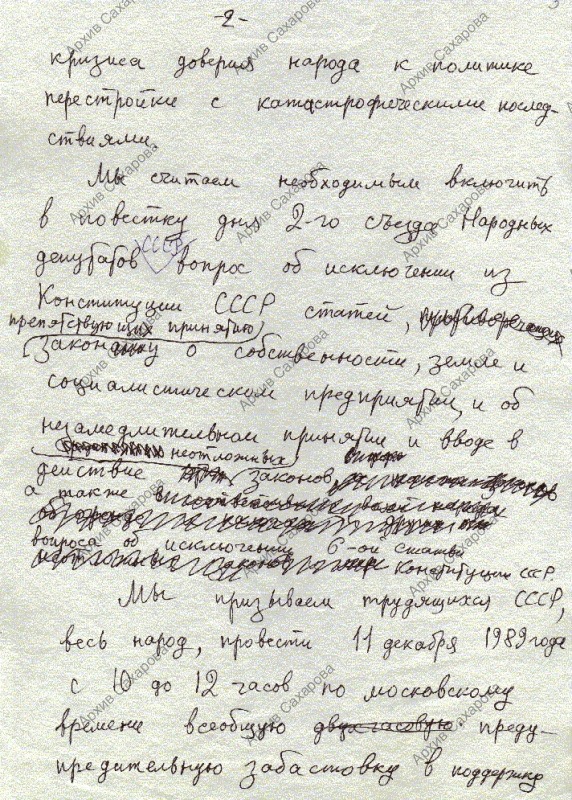 -2-
кризиса доверия народа к политике
перестройки с катастрофическими послед-
ствиями.
Мы считаем необходимым включить
в повестку дня 2-го съезда Народных
депутатов СССР вопрос об исключении из
Конституции СССР статей,
препятствующих принятию
закона о собственности, земле и
социалистическом предприятии, и об
незамедлительном принятии и вводе в
неотложных
действие законов
а также
вопроса об исключении 6-ой статьи
Конституции СССР.
Мы призываем трудящихся СССР,
весь народ, провести 11 декабря 1989 года
с 10 до 12 часов по московскому
времени всеобщую двухчасовую преду-
предительную забастовку в поддержку
Архив Сахарова